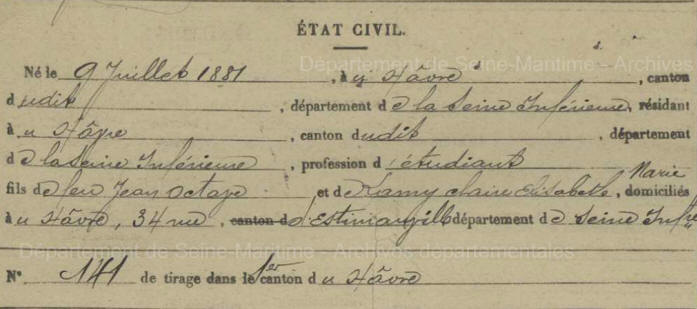 ÉTAT CIVIL.
Né le 9 Juillet 1881, à u Hâvre, canton
dudit, département de la Seine Inférieure, résidant
à u Hâvre, canton dudit, département
de la Seine Inférieure, profession d'étudiant
Marie
fils de feu Jean Octave et de Lamy Claire Elisabeth, domiciliés
à u Hâvre, 34 rue, canton d d'Estimauville département de Seine Infre
N° 141 de tirage dans le 1er canton du Hâvre
Département de Seine-Maritime - Archives
Département de Seine-Maritime - Archives départementales